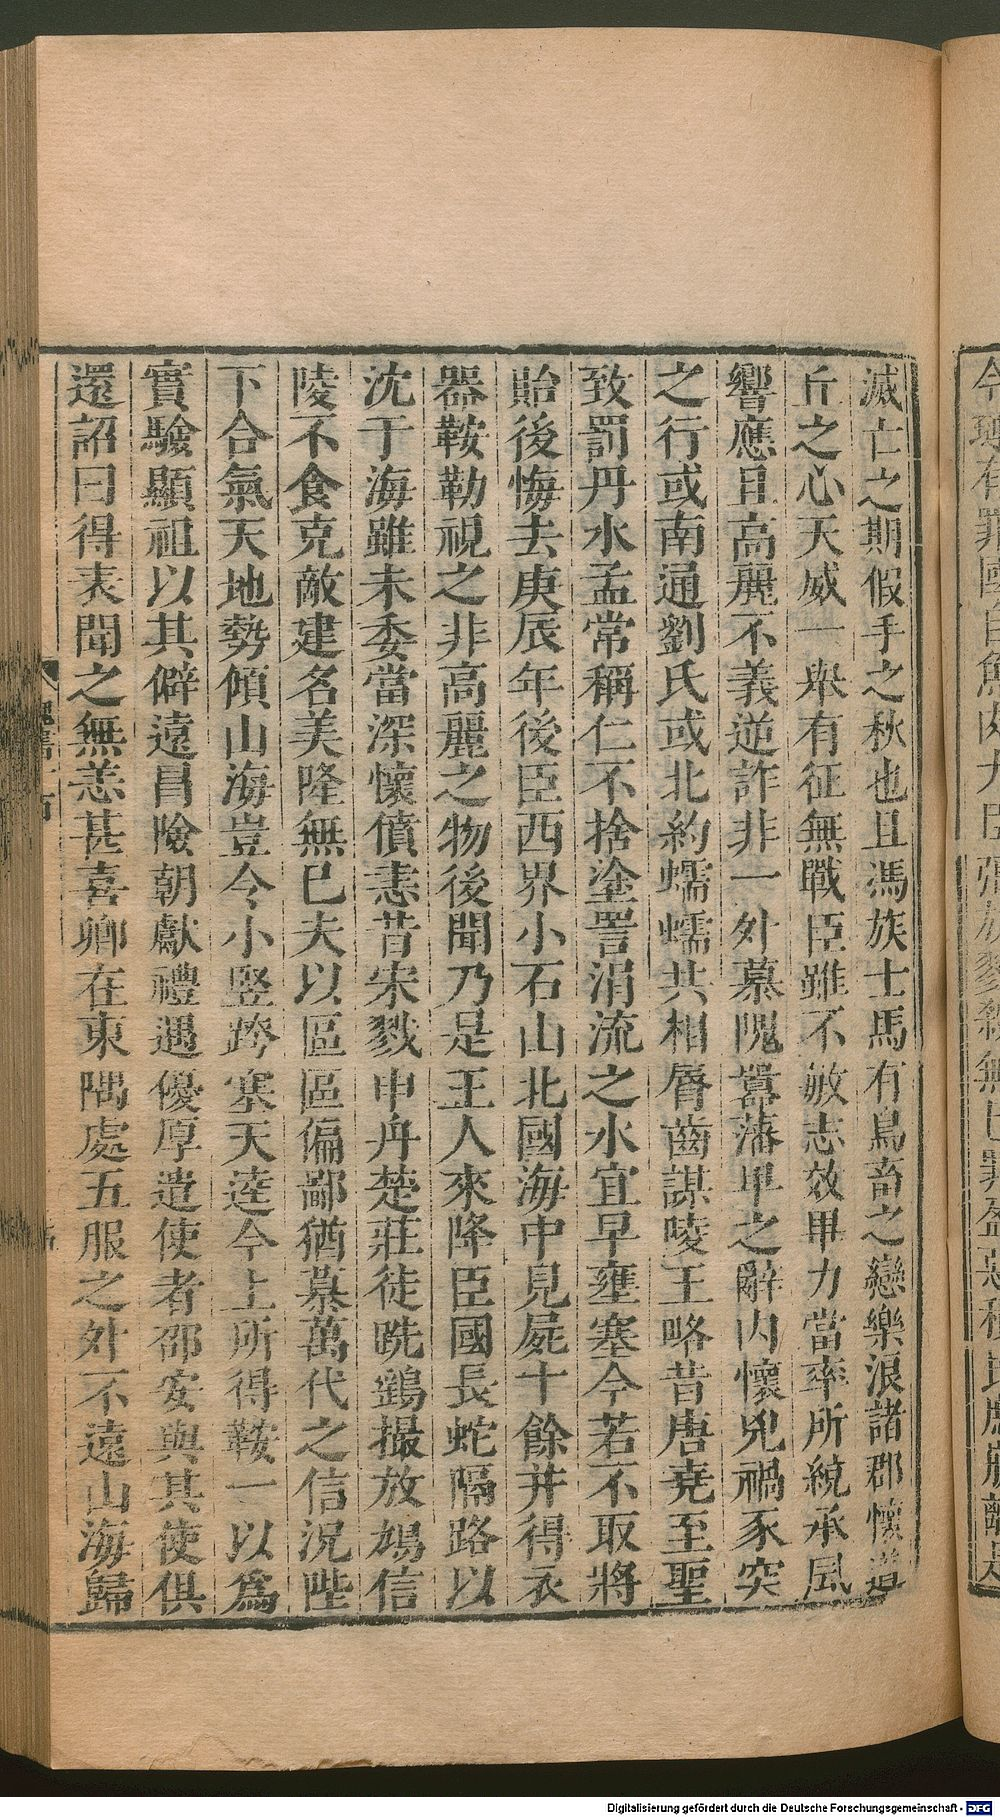 今璉有罪國自魚肉大臣彊族戮殺無已罪盈惡積民庶崩離是
滅亡之期假手之秋也且馮族士馬有鳥畜之戀樂浪諸郡懷首
丘之心天威一舉有征無戰臣雖不敏志效畢力當率所統承風
響應且高麗不義逆詐非一外慕隗囂藩卑之辭內懷兇禍豕突
之行或南通劉氏或北約蠕蠕共相脣齒謀陵王略昔唐堯至聖
致罰丹水孟常稱仁不捨塗詈涓流之水宜早壅塞今若不取將
貽後悔去庚辰年後臣西界小石山北國海中見屍十餘并得衣
器鞍勒視之非高麗之物後聞乃是王人來降臣國長蛇隔路以
沈于海雖未委當深懷憤恚昔宋戮申舟楚莊徒跣鷂撮放鳩信
陵不食克敵建名美隆無已夫以區區偏鄙猶慕萬代之信況陛
下合氣天地勢傾山海豈令小豎跨塞天逵今上所得鞍一以爲
實驗顯祖以其僻遠昌險朝獻禮遇優厚遣使者邵安與其使俱
還詔曰得表聞之無恙甚喜卿在東隅處五服之外不遠山海歸
Digitalisierung gefördert durch die Deutsche Forschungsgemeinschaft - DFG